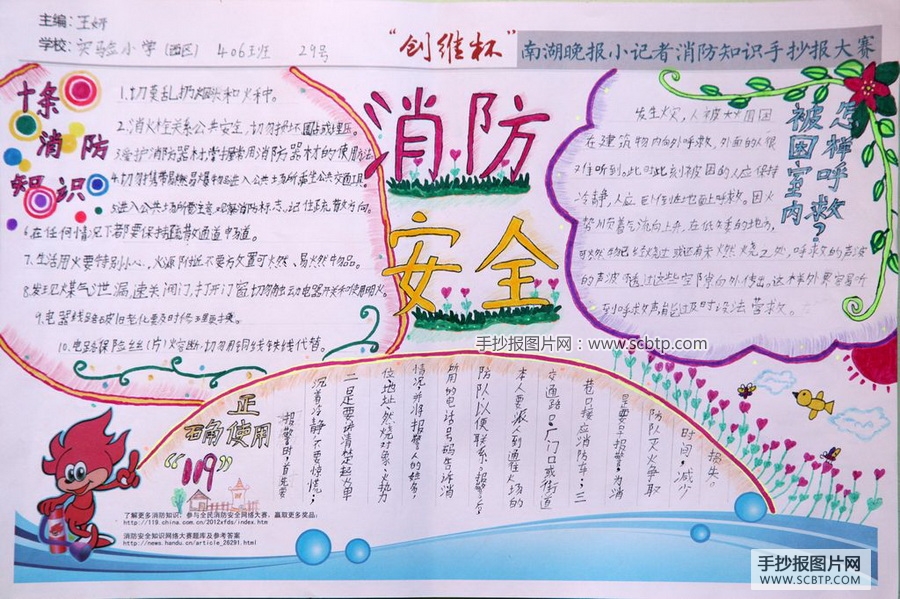 主编：王妍
学校：实验小学（西区）406班 29号
“创维杯”南湖晚报小记者消防知识手抄报大赛
十条
消防
知识
1.切莫乱扔烟头和火种。
2.消火栓关系公共安全，切勿损坏圈占或埋压。
3.爱护消防器材，掌握常用消防器材的使用方法
4.切勿携带易燃易爆物品进入公共场所乘坐公共交通工具。
5.进入公共场所要注意观察消防标志，记住疏散方向。
6.在任何情况下都要保持疏散通道中畅通。
7.生活用火要特别小心，火源附近不要方放置可燃、易燃物品。
8.发现煤气泄漏，速关阀门，打开门窗，切勿触动电器开关和使用明火。
9.电器线路破旧老化要及时修理更换。
10.电路保险丝（片）熔断，切勿用铜线铁线代替。
消防
安全
怎样呼救？
被困室内
发生火灾，人被大火围困
在建筑物内向外呼救，外面的人很
难听到。此时此刻被困的人应保持
冷静，人应
势顺着气流向上升，在低矮的地方，
可燃物已经烧过或还有未燃烧之处，呼救的声波
的声波透过这些空隙向外传出，这样外界容易听
到呼救声，能及时设法营救。
手抄报图片网：www.scbtp.com
正
确使用
“119”
报警时，首先要
沉着冷静，不要惊慌；
二是要讲清楚起火单
位、地址、燃烧对象、火势
情况，并将报警人的姓名，
所用的电话号码告诉消
防队，以便联系。报警后，
本人要派人到通往火场的
交通路口、厂门口或街道
巷口接应消防车；三
是要早报警，为消
防队灭火争取
时间，减少
损失。
了解更多消防知识；参与全民消防安全网络大赛，赢取更多奖品；
http://119.china.com.cn/2012xfds/index.htm
消防安全知识网络大赛题库及参考答案
http://news.handu.cn/article_26291.html
手抄报图片网
WWW.SCBTP.COM